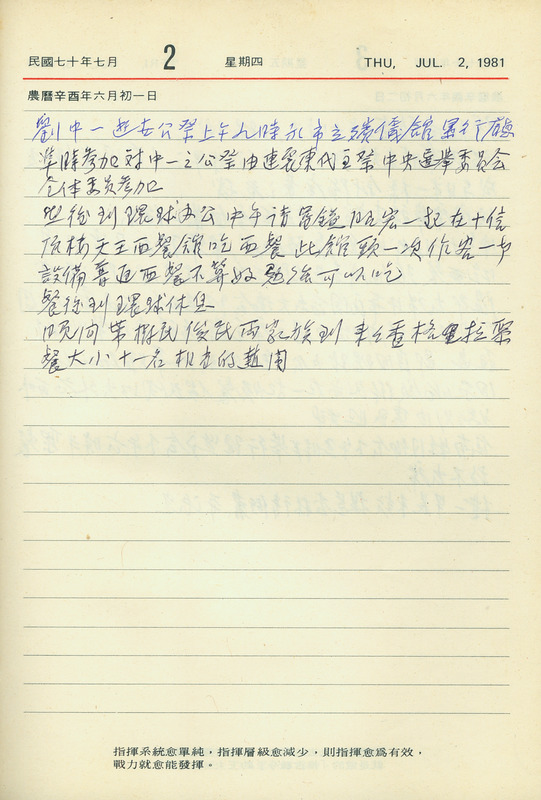 民國七十年七月 2 星期四 THU, JUL. 2, 1981
農曆辛酉年六月初一日
劉中一逝世公祭上午九時永市立殯儀館景行廳
準時參加 對中一之公祭由連震東代主祭 中央選舉委員会
全体委員參加
然後到環球办公 中午請 昭宏一起在十信
頂樓天王西餐館吃西餐 此館頭一次作客一切
設備普通西餐不算好勉強可以吃
餐後到環球休息
晚间帶樹民俊民两家族到 來來香格里拉聚
餐大小十一名 的
指揮系統愈單純,指揮層級愈減少,則指揮愈爲有效,
戰力就愈能發揮。